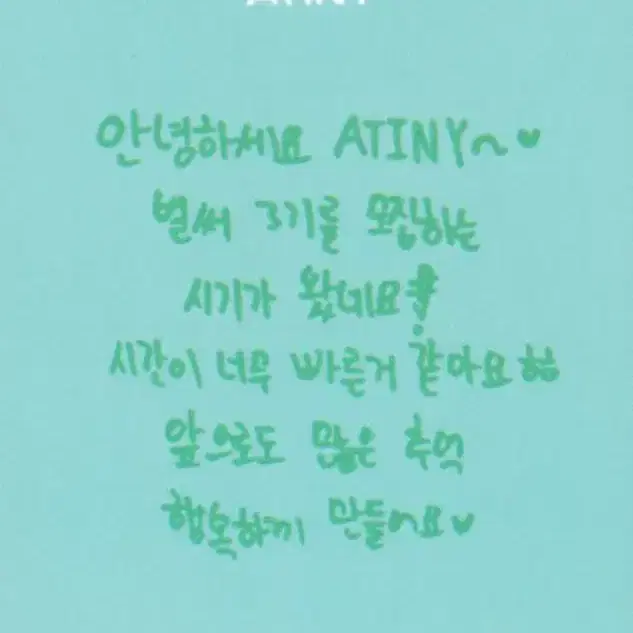 안녕하세요 ATINY~♥
벌써 3기를 모집하는
시기가 왔네요!
시간이 너무 빠른거 같아요ㅎㅎ
앞으로도 많은 추억
행복하게 만들어요♥